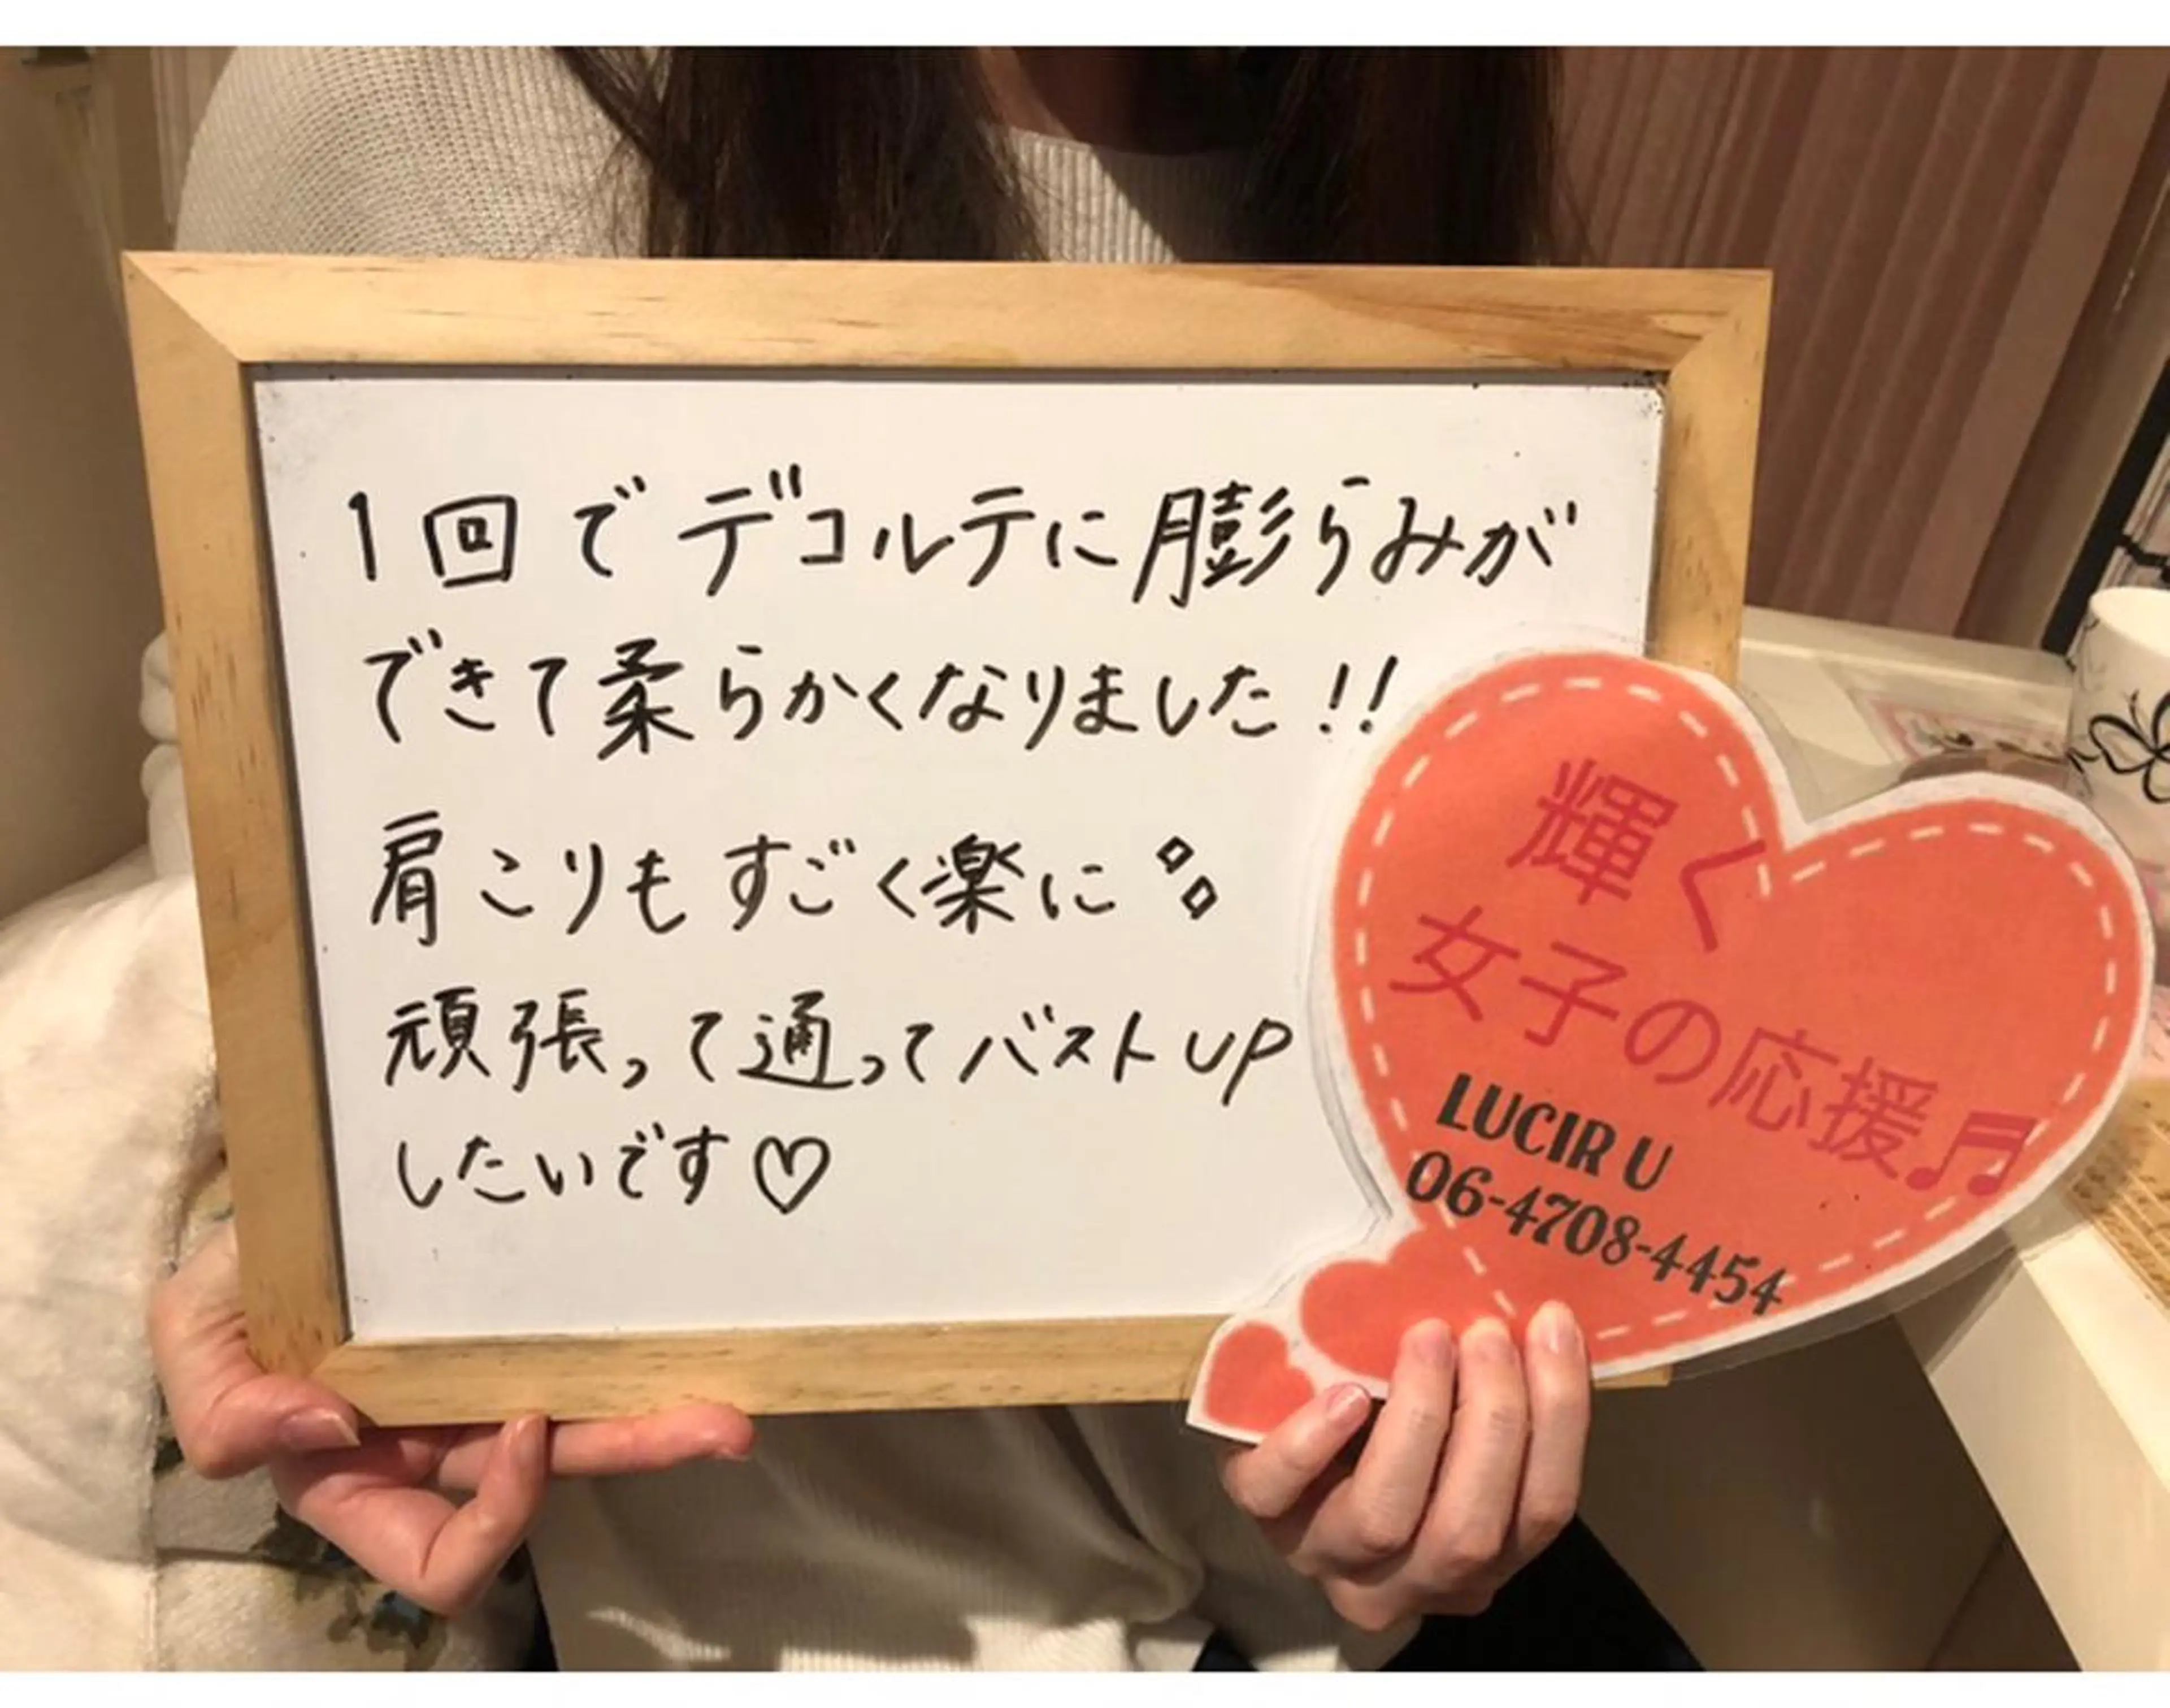 1回でデコルテに膨らみが
できて柔らかくなりました!!
肩こりもすごく楽に
頑張って通ってバストUP
したいです♡
輝く
女子の応援♬
LUCIR U
06-4708-4454